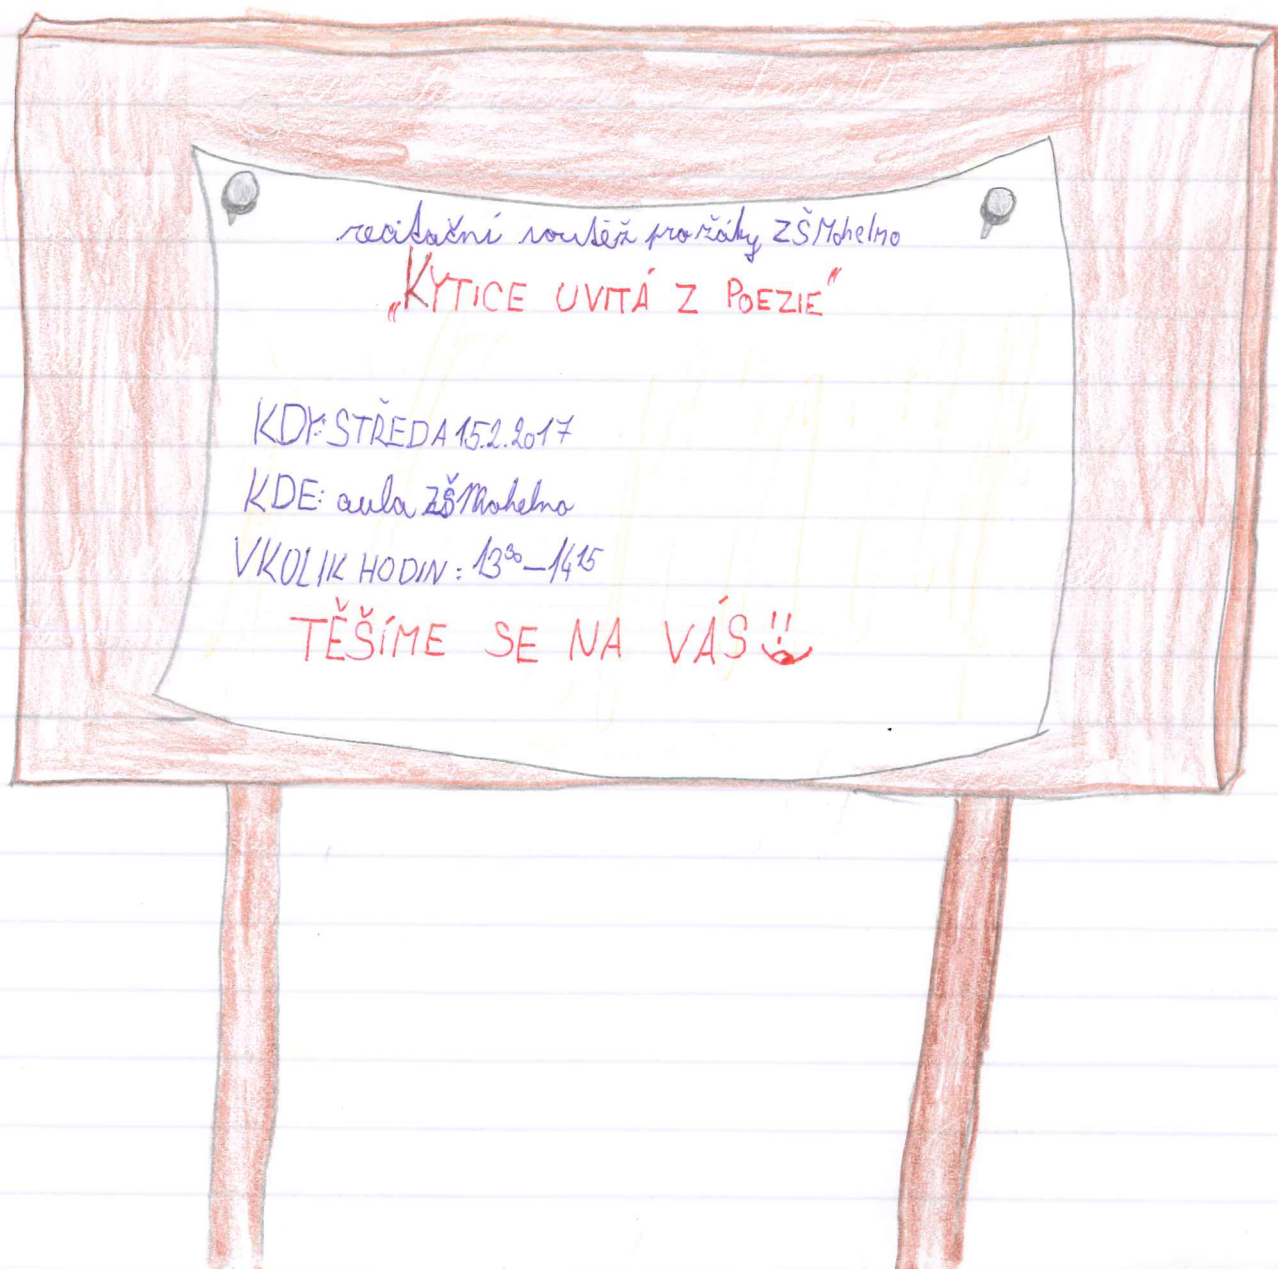 recitační soutěž pro žáky ZŠ Mohelno
„KYTICE UVITÁ Z POEZIE“
KDY: STŘEDA 15.2.2017
KDE: aula ZŠ Mohelno
V KOLIK HODIN: 13³⁰ – 14¹⁵
TĚŠÍME SE NA VÁS